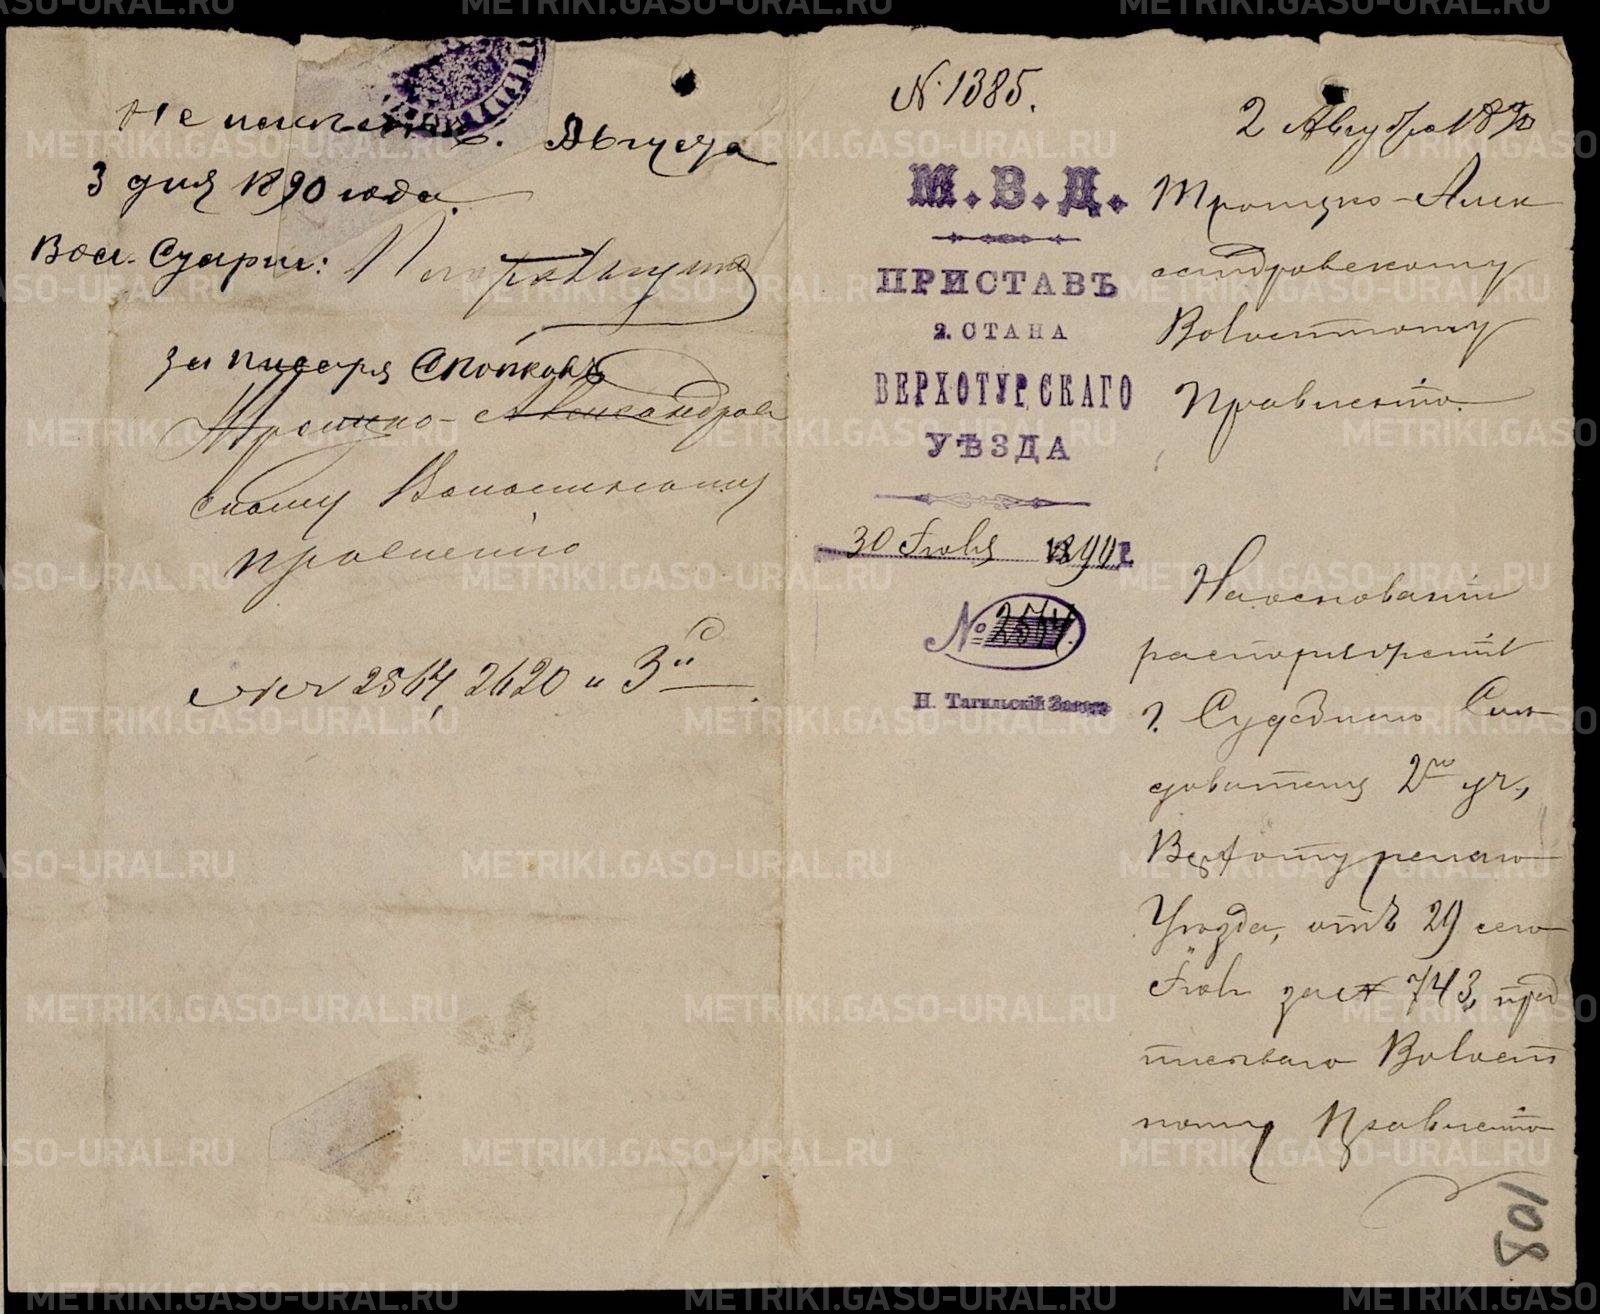 августа
3 дня 1890 года.
Вол. Старш:
за писаря Снопковъ
Троицко-Александров
скому Волостному
правленію
2564, 2620 и 3й
№ 1385.
М. В. Д.
ПРИСТАВЪ
2. СТАНА
ВЕРХОТУРСКАГО
УѢЗДА
30 Іюля 1890 г.
№ 2564.
Н. Тагильскій Заводъ
2 Августа 1890
Троицко-Алек
сандровскому
Волостному
Правленію.
На основаніи
распоряженія
г. Судебнаго Слѣ
дователя 2го уч.,
Верхотурскаго
Уѣзда, отъ 29 сего
Іюля за № 743, пред
писываю Волост
ному Правленію
108
METRIKI.GASO-URAL.RU